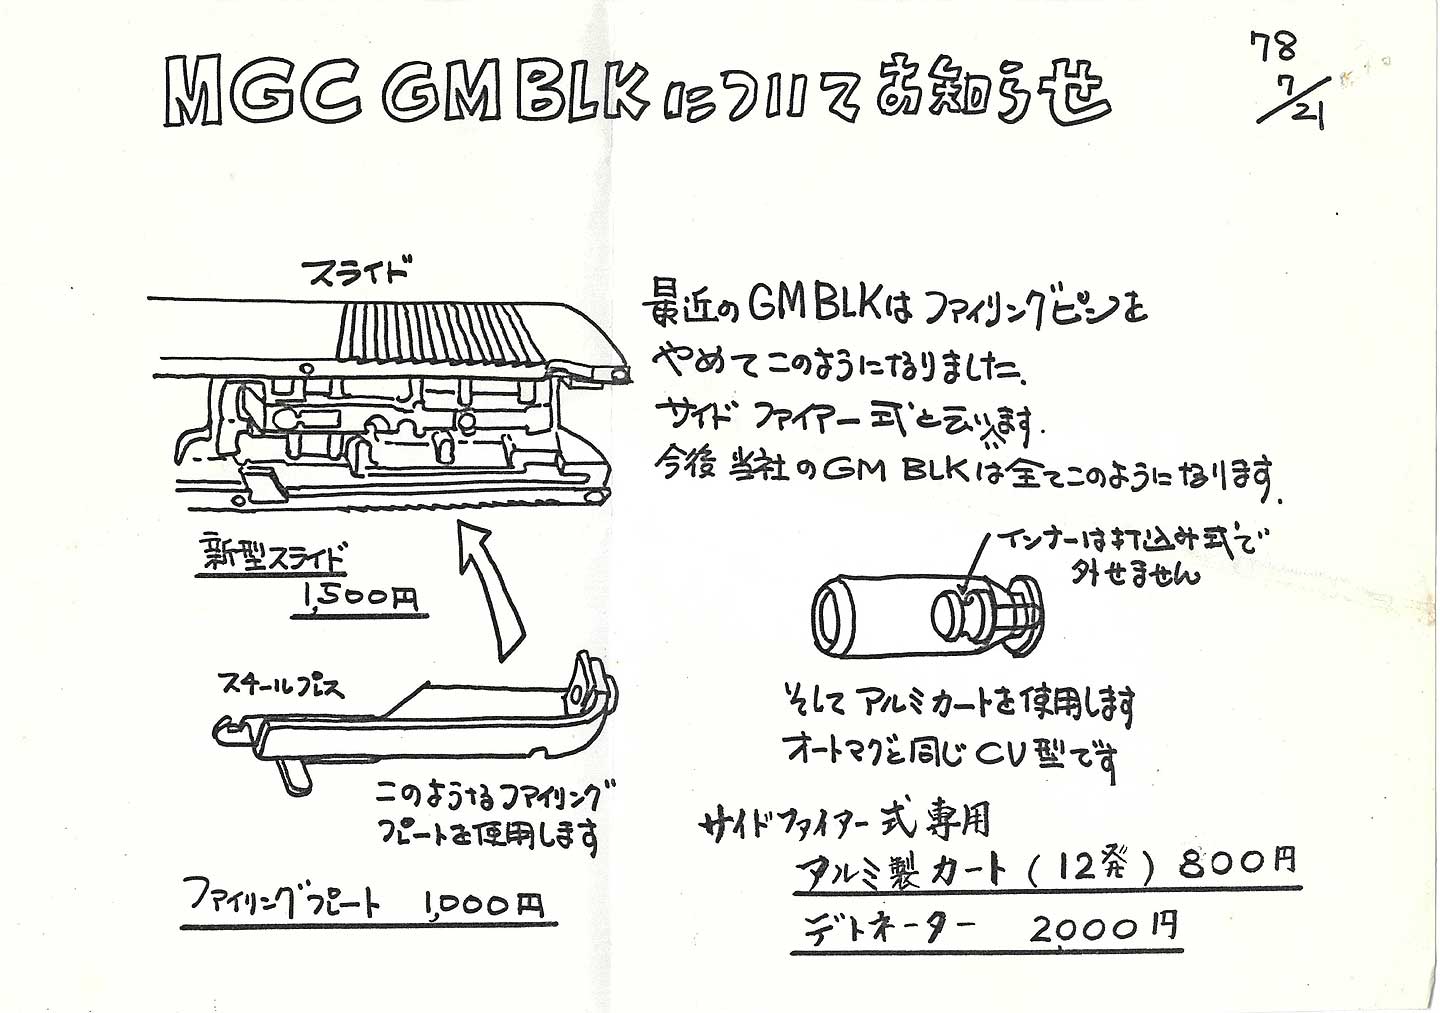 MGC GM BLKについてお知らせ
78
7/21
スライド
最近のGM BLKは ファイリングピンを
やめてこのようになりました.
サイド ファイアー式と云います.
今後 当社のGM BLKは全てこのようになります.
新型スライド
1,500円
インナーは打込み式で
外せません
スチールプレス
このようなファイリング
プレートを使用します
ファイリングプレート 1,000円
そして アルミカートを使用します
オートマグと同じ CV型です
サイドファイアー式専用
アルミ製 カート (12発) 800円
デトネーター 2,000円